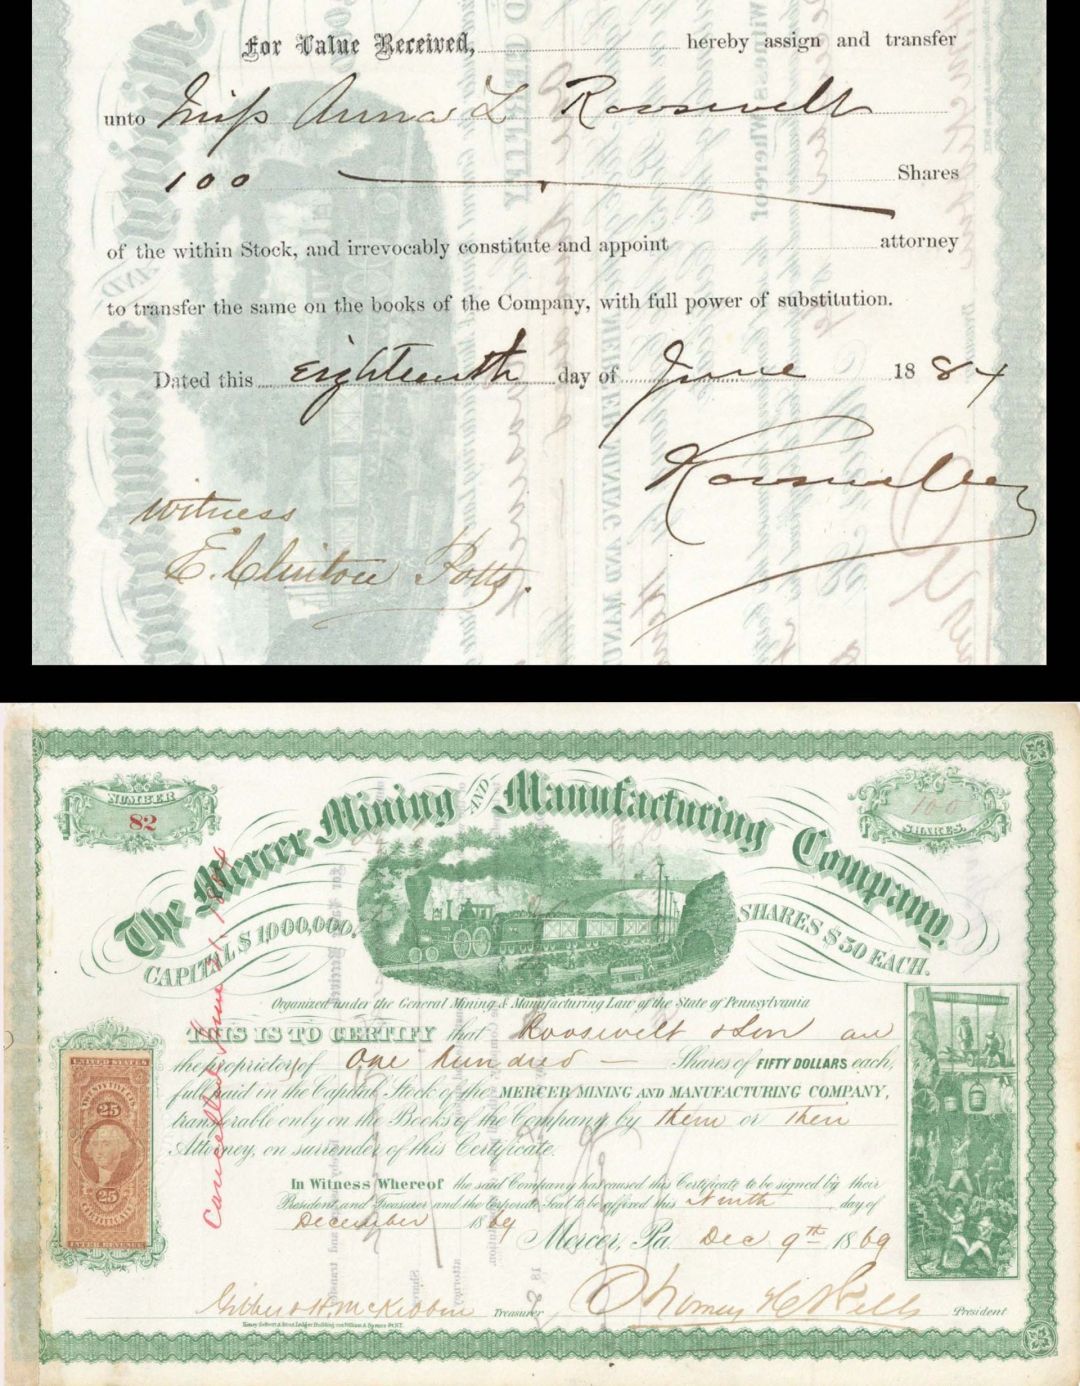 For Value Received, hereby assign and transfer
unto Miss Anna L Roosevelt
100 Shares
of the within Stock, and irrevocably constitute and appoint attorney
to transfer the same on the books of the Company, with full power of substitution.
Dated this eighteenth day of June 1884
witness
E. Clinton Potts.
NUMBER
82
100
SHARES.
The Mercer Mining AND Manufacturing Company.
CAPITAL $1,000,000.
SHARES $50 EACH.
Organized under the General Mining & Manufacturing Law of the State of Pennsylvania
THIS IS TO CERTIFY that Roosevelt & Son are
the proprietors of One hundred Shares of FIFTY DOLLARS each,
full paid in the Capital Stock of the MERCER MINING AND MANUFACTURING COMPANY,
transferable only on the Books of the Company by them or their
Attorney, on surrender of this Certificate.
In Witness Whereof the said Company has caused this Certificate to be signed by their
President and Treasurer and the Corporate Seal to be affixed this Ninth day of
December 1869 Mercer, Pa. Dec 9th 1869
Gilbert H. McKibbin Treasurer
President
Cancelled June 21, 1884
UNITED STATES
25
25
CERTIFICATE
INTER. REVENUE